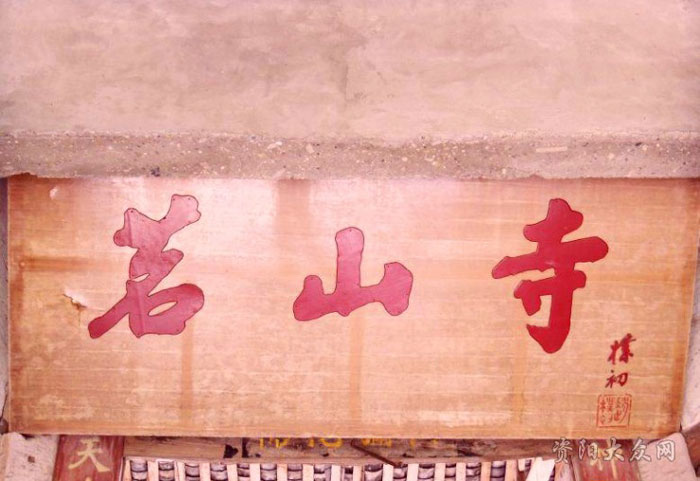 茗山寺
樸初
天
资阳大众网